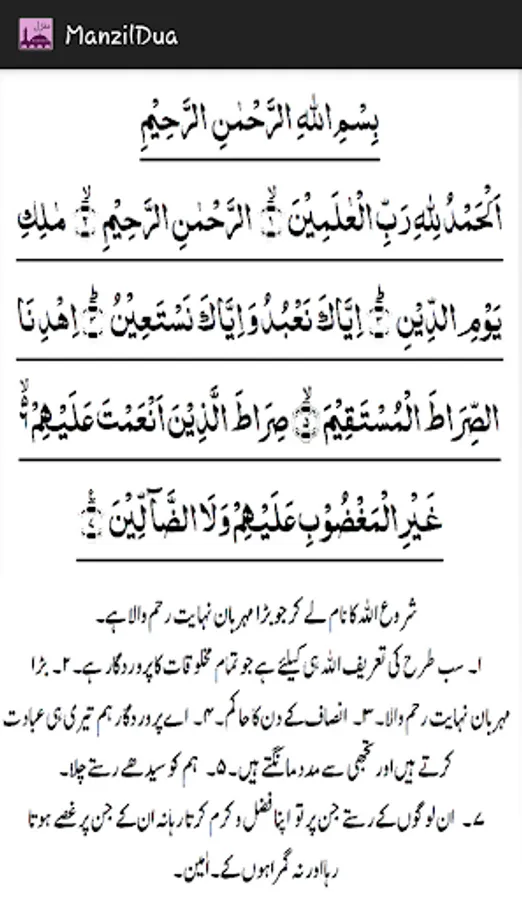 ManzilDua
بِسْمِ اللهِ الرَّحْمٰنِ الرَّحِيْمِ
اَلْحَمْدُ لِلّٰهِ رَبِّ الْعٰلَمِيْنَ ۙ﴿۱﴾ الرَّحْمٰنِ الرَّحِيْمِ ۙ﴿۲﴾ مٰلِكِ
يَوْمِ الدِّيْنِ ؕ﴿۳﴾ اِيَّاكَ نَعْبُدُ وَ اِيَّاكَ نَسْتَعِيْنُ ؕ﴿۴﴾ اِهْدِنَا
الصِّرَاطَ الْمُسْتَقِيْمَ ۙ﴿۵﴾ صِرَاطَ الَّذِيْنَ اَنْعَمْتَ عَلَيْهِمْ ۙ۬۶
غَيْرِ الْمَغْضُوْبِ عَلَيْهِمْ وَلَا الضَّآلِّيْنَ
شروع اللہ کا نام لے کر جو بڑا مہربان نہایت رحم والا ہے۔
۱۔ سب طرح کی تعریف اللہ ہی کیلئے ہے جو تمام مخلوقات کا پروردگار ہے۔ ۲۔ بڑا
مہربان نہایت رحم والا۔ ۳۔ انصاف کے دن کا حاکم۔ ۴۔ اے پروردگار ہم تیری ہی عبادت
کرتے ہیں اور تجھی سے مدد مانگتے ہیں۔ ۵۔ ہم کو سیدھے رستے چلا۔
۷۔ ان لوگوں کے رستے جن پر تو اپنا فضل و کرم کرتا رہا نہ ان کے جن پر غصے ہوتا
رہا اور نہ گمراہوں کے۔ اٰمین۔